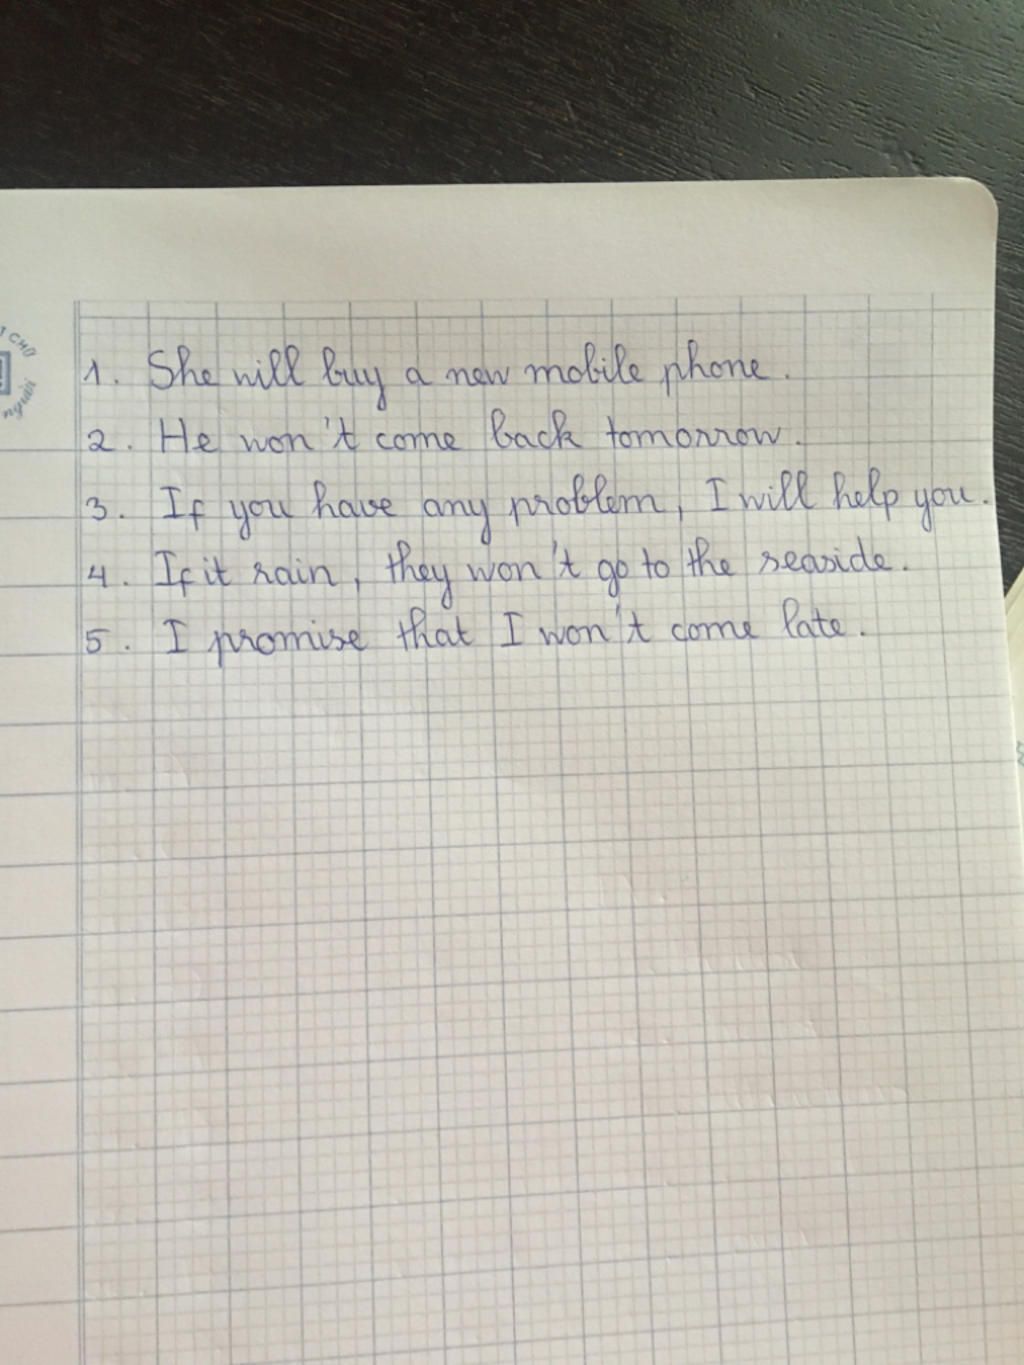 T CHO
người
1. She will buy a new mobile phone.
2. He won't come back tomorrow.
3. If you have any problem, I will help you.
4. If it rain, they won't go to the seaside.
5. I promise that I won't come late.